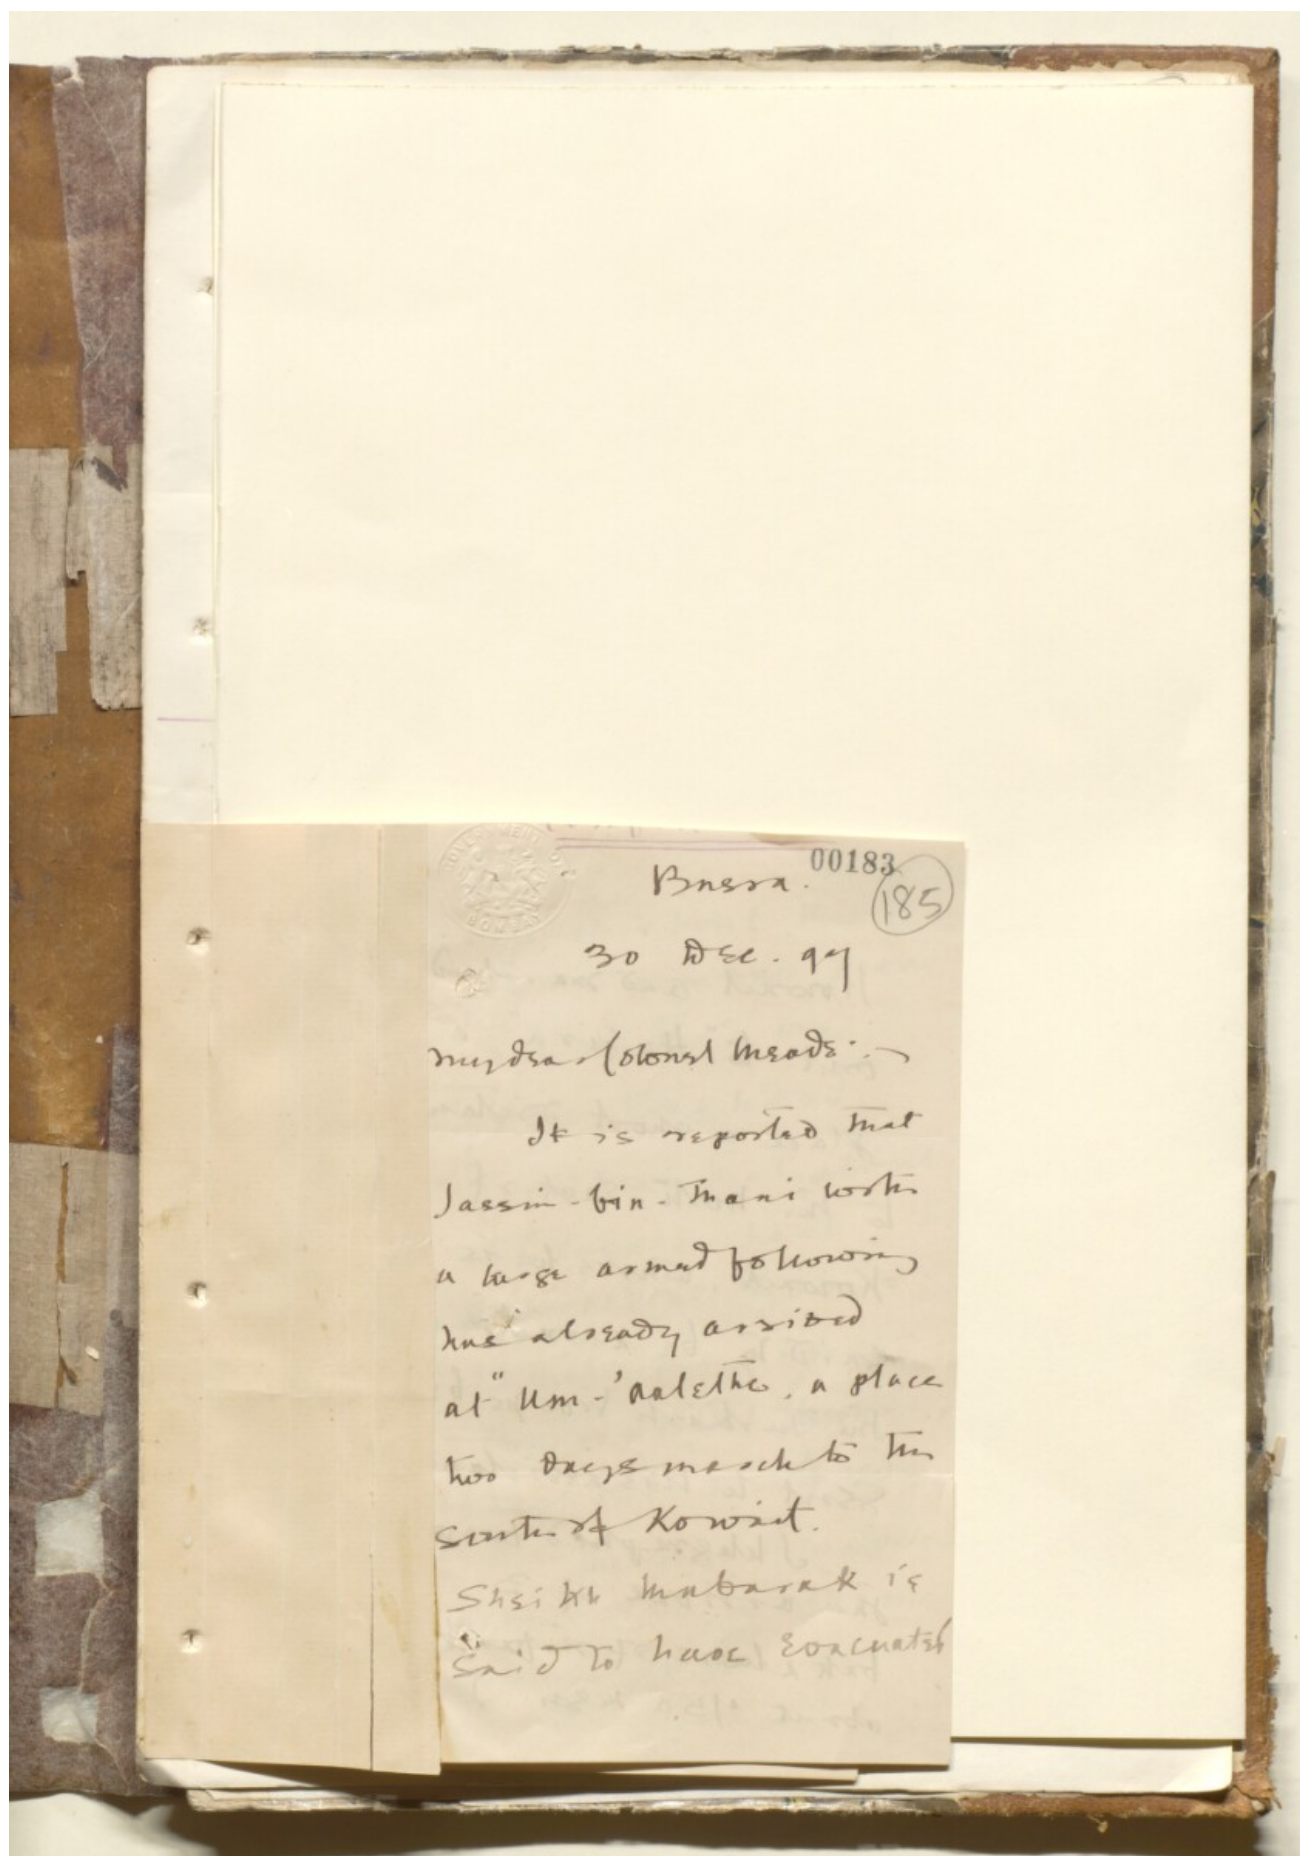 GOVERNMENT OF
BOMBAY
00183
185
Busra.
30 Dec. 97
My dear Colonel Meade:-
It is reported that
Jassim-bin-Thani with
a large armed following
has already arrived
at "Um-'
a place
two days march to the
south of Koweit.
Sheikh Mubarak is
said to have evacuated